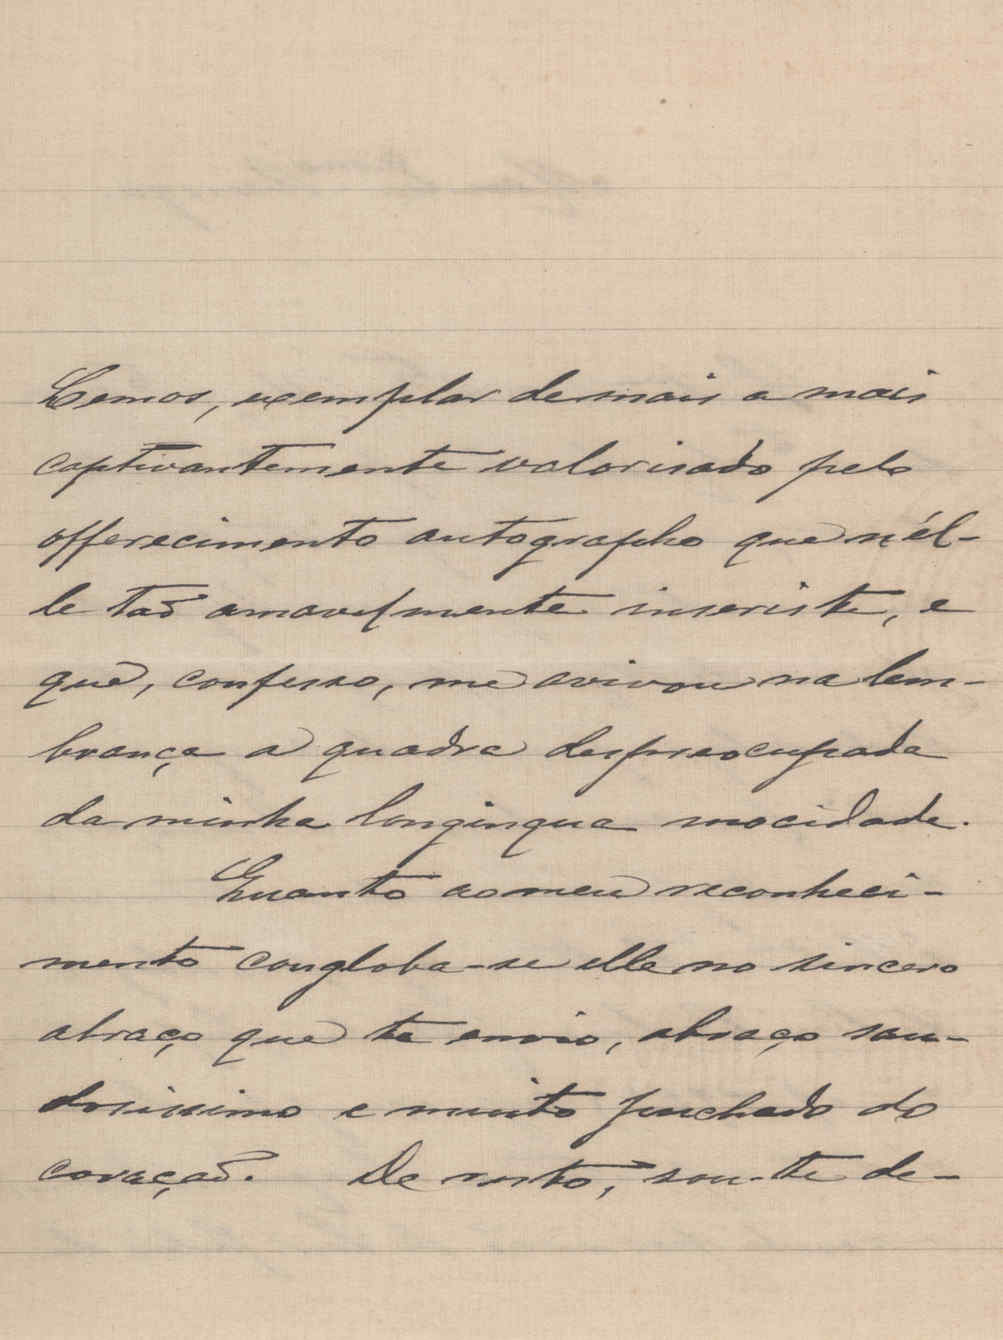 Lemos, exemplar de mais a mais
captivantemente valorisado pelo
offerecimento autographo que n'él-
le tão amavelmente inseriste, e
que, confesso, me avivou na lem-
brança a quadra despreocupada
da minha longinqua mocidade.
Quanto ao meu reconheci-
mento congloba-se elle no sincero
abraço que te envio, abraço sau-
dosissimo e muito puchado do
coração. De resto, sou-te de-